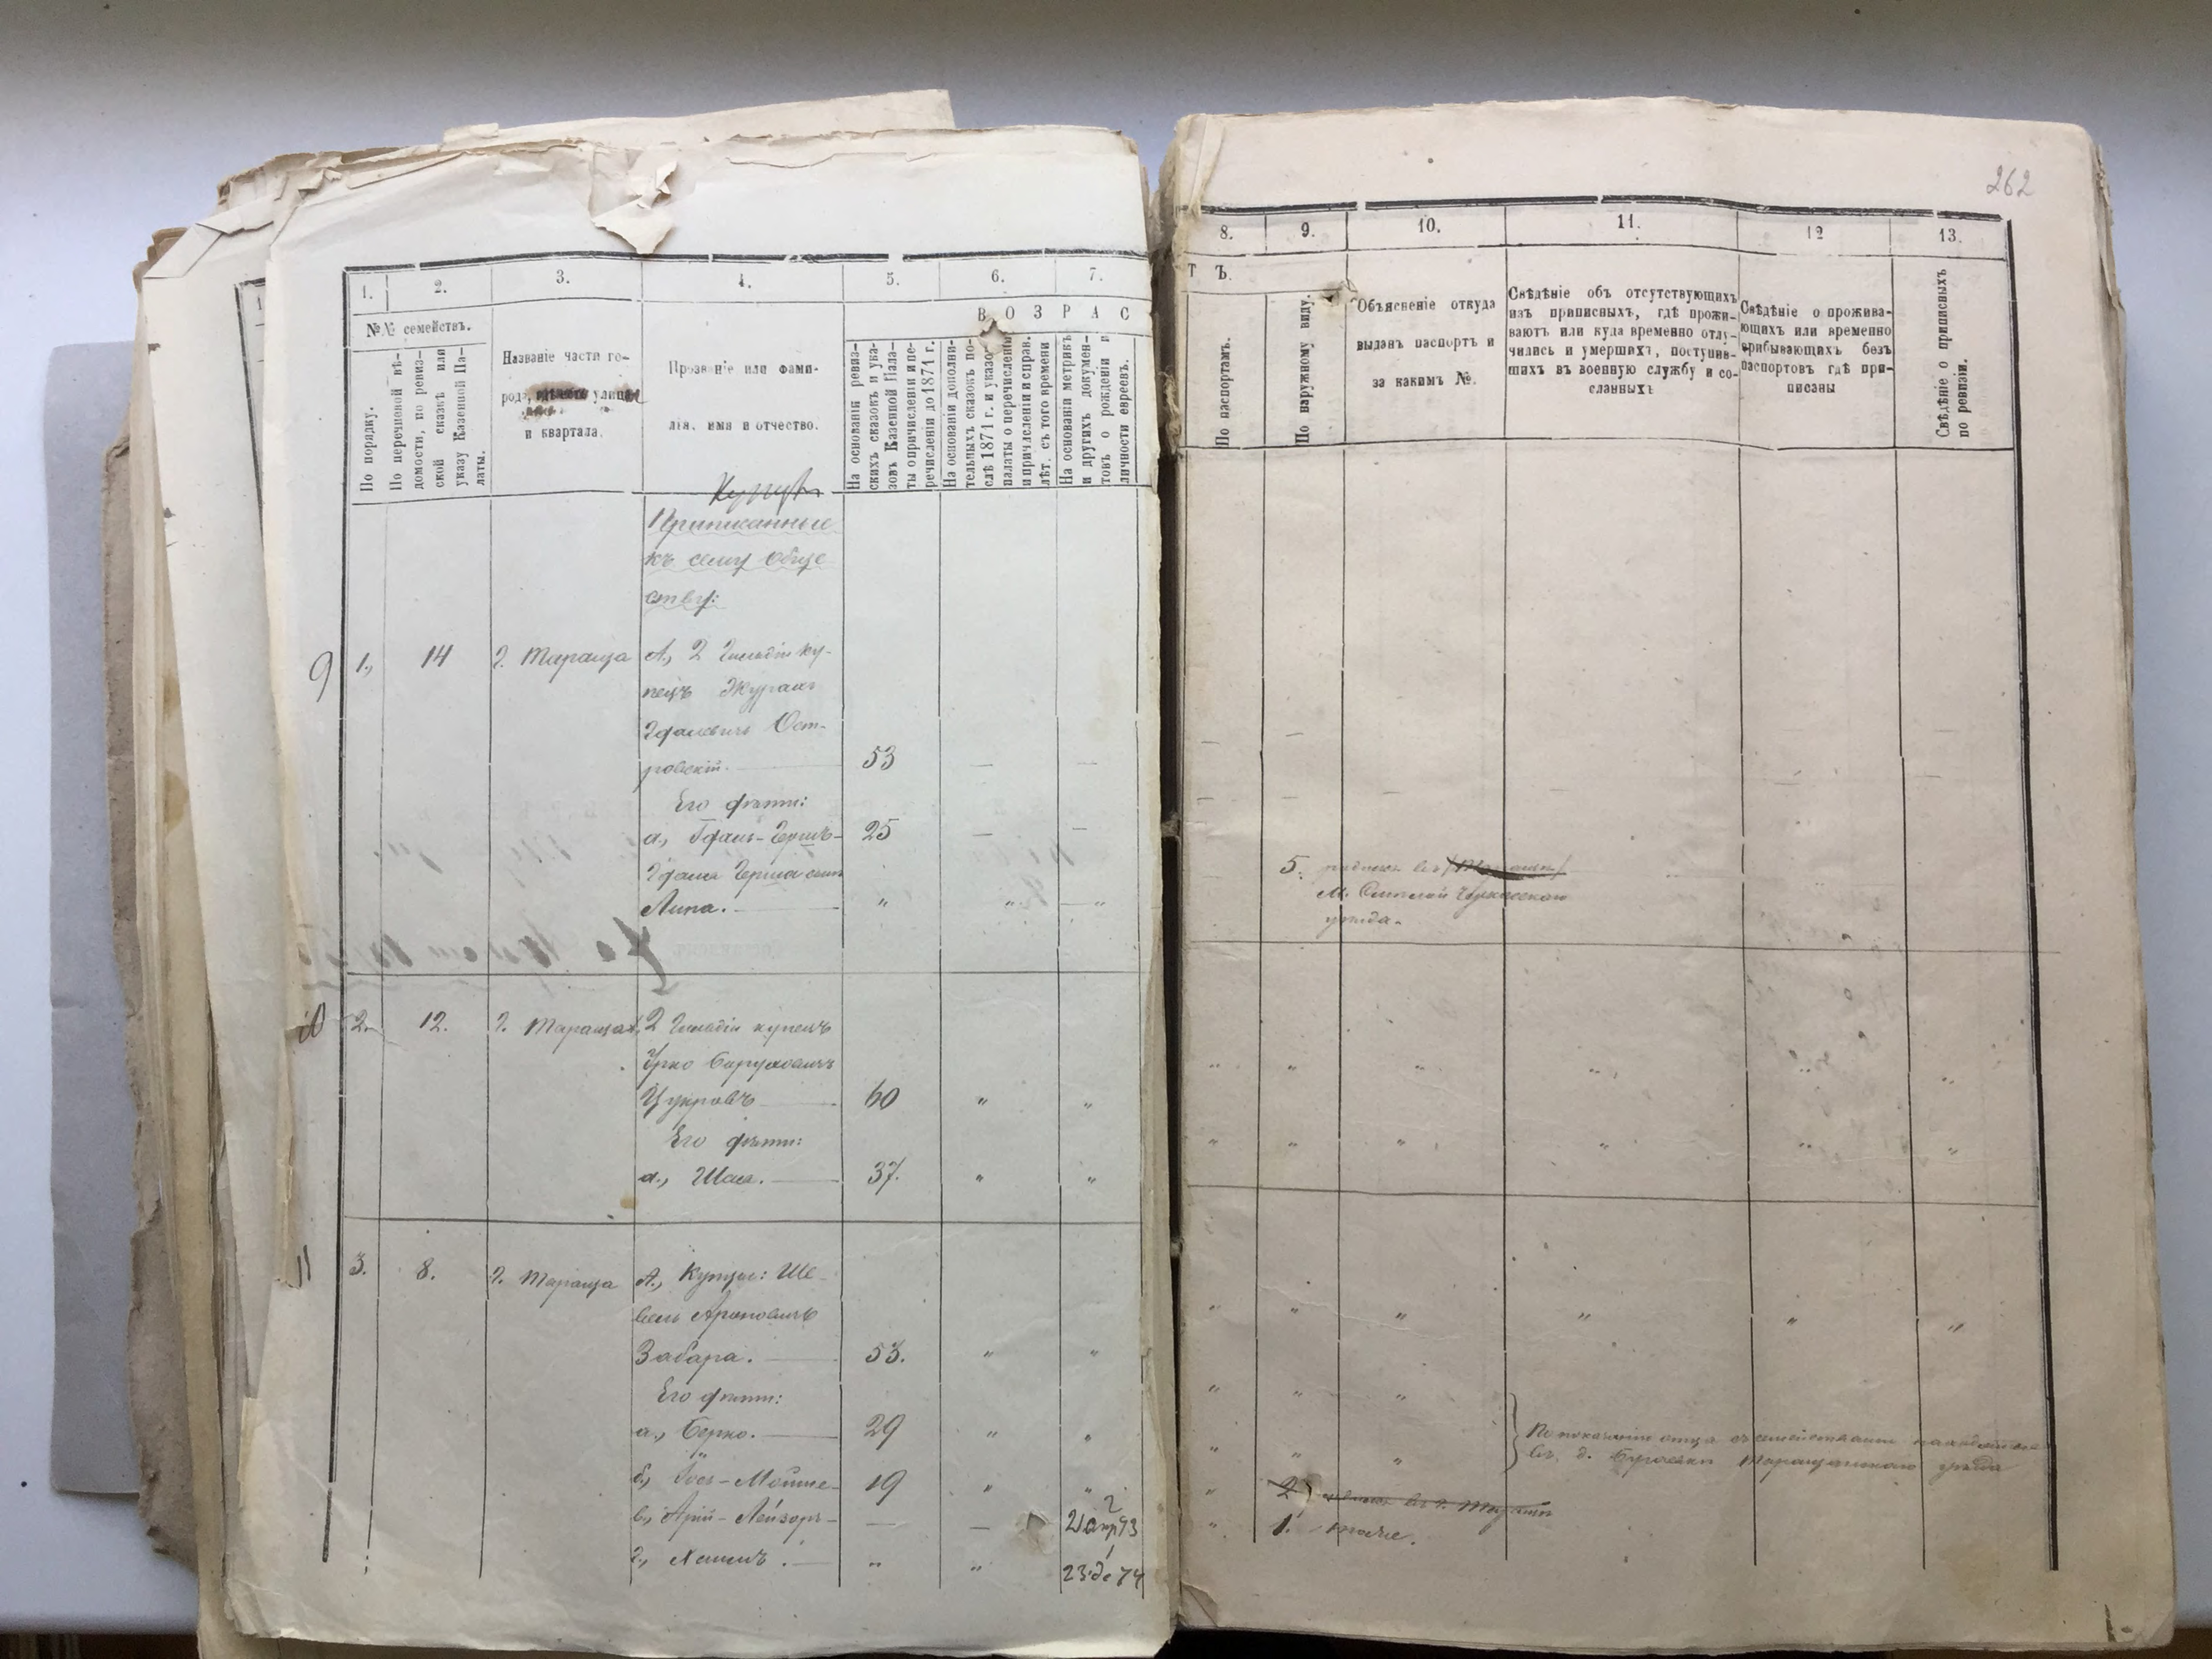 262
1.
2.
3.
4.
5.
6.
7.
8.
9.
10.
11.
12
13.
№№ семействъ.
В О З Р А С
Т Ъ.
По порядку.
По перечневой вѣ-
домости, по ревиз-
ской сказкѣ или
указу Казенной Па-
латы.
Названіе части го-
рода, улицы
и квартала.
Прозваніе или фами-
лія, имя и отчество.
На основаніи ревиз-
скихъ сказокъ и ука-
зовъ Казенной Пала-
ты о причисленіи и пе-
речисленіи до 1871 г.
На основаніи дополни-
тельныхъ сказокъ по-
слѣ 1871 г. и указовъ
палаты о перечисленіи
и причисленіи и справ.
лѣт. съ того времени
На основаніи метрикъ
и другихъ докумен-
товъ о рожденіи и
личности евреевъ.
По паспортамъ.
По наружному виду.
Объясненіе откуда
выданъ паспортъ и
за какимъ №.
Свѣдѣніе объ отсутствующихъ
изъ приписныхъ, гдѣ прожи-
ваютъ или куда временно отлу-
чились и умершихъ, поступив-
шихъ въ военную службу и со-
сланныхъ
Свѣдѣніе о прожива-
ющихъ или временно
прибывающихъ безъ
паспортовъ гдѣ при-
писаны
Свѣдѣніе о приписныхъ
по ревизіи.
Приписанные
къ сему обще
ству:
9 1., 14 г. Тараща А., 2 Гильдіи ку-
пецъ
Ост-
ровскій. 53 — —
Его дѣти:
а., 25 — —
Липа. — „ „ „
5.
М. Черкасскаго
уѣзда.
10 2. 12. г. Тараща А., 2 Гильдіи купецъ
Баруховичъ
Цукровъ 60 „ „
Его дѣти:
а., Шая. — 37. „ „
11 3. 8. г. Тараща А., Купцы: Ше-
вель Ароновичъ
Забара. — 53. „ „
Его дѣти:
а., Берко. — 29 „ „
б., Іось-Мошке- 19 „ „
в., Арій-Лейзоръ- — —
г., Хаимъ. — „ „ 23 де 74
По показанію отца съ семействами находятся
въ д. Таращанскаго уѣзда
2
1.